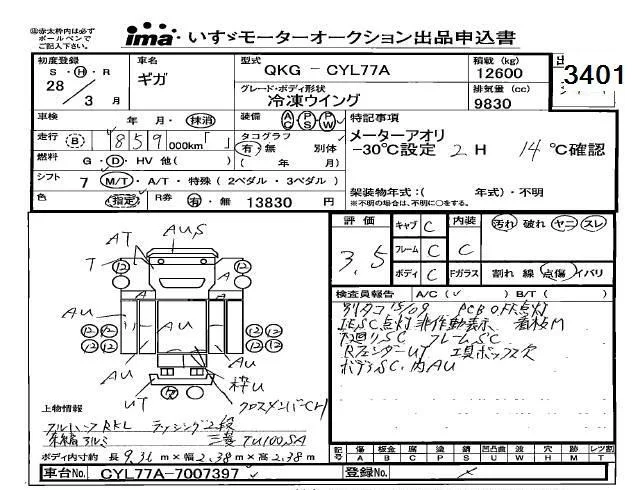 ※赤太枠内は必ず
ボールペンで
ご記入下さい。
ima・いすゞモーターオークション出品申込書
初度登録 車名 型式 積載 (kg)
S・H・R ギガ QKG － CYL77A 12600
28 / 3 月 グレード・ボディ形状 排気量 (cc)
冷凍ウイング 9830
3401
車検 年 月・抹消 装備 AC PS PW 特記事項
走行 B 4859000km タコグラフ メーターアオリ
有・無 別体 -30℃設定 2H 14℃確認
燃料 G・D・HV 他( ) ( 年 月)
シフト 7 M/T・A/T・特殊 (2ペダル・3ペダル)
架装物年式:( 年式)・不明
色 (指定) R券 有・無 13830 円 ※不明の場合は、不明に○をする。
評価 キャブ C 内装 汚れ 破れ ヤニ スレ
3.5 フレーム C C
ボディ C Fガラス 割れ 線 点傷 イバリ
検査員報告 A/C( ✓ ) B/T( )
PCB OFF点灯
非作動表示 看板M
下廻りSC フレームSC
RフェンダーUT 工具ボックス欠
ボデーSC.内AU
AT AUS
T A A
AU AU AU
AU AU
UT 枠U
クロスメンバーCH
上物情報
三菱 TU100SA
ボディ内寸約 長 9.36 m×幅 2.38 m×高 2.38 m
記号 傷 A 板金 B 腐 C 塗 P 錆 S 凹凸曲 U 波 W 穴 H 跡 M レンズ割 T
車台No. CYL77A-7007397 登録No.